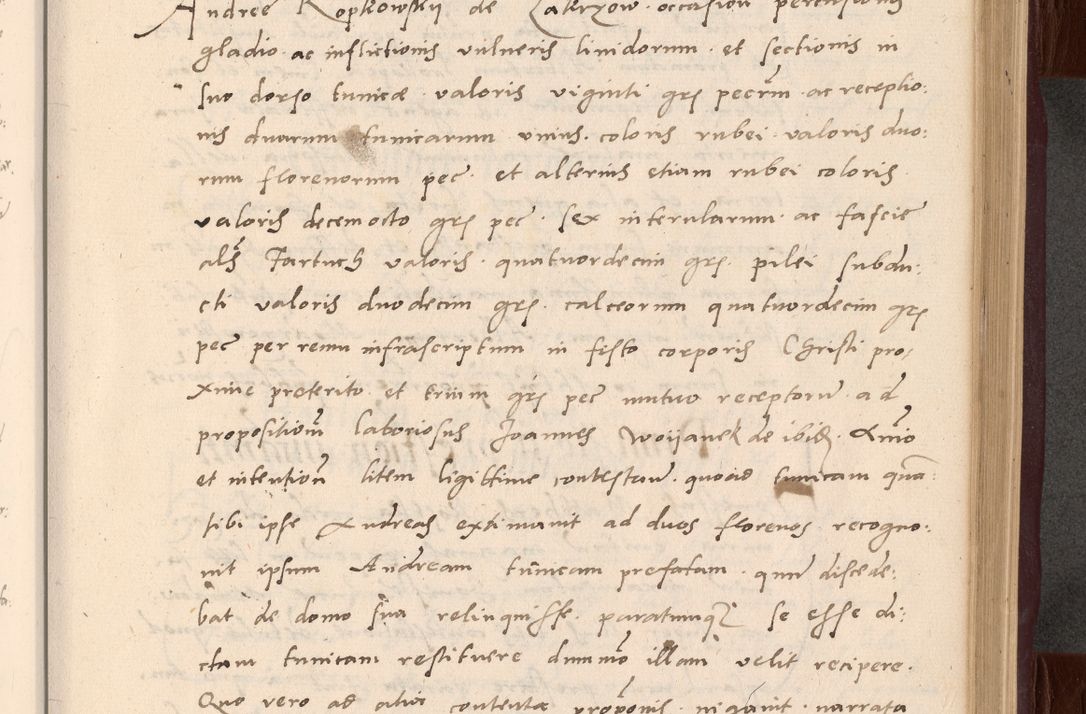 Andree Kopkowskij de Zakrzow occasion percussionis
gladio ac inflictionis vulneris linidorum et sectionis in
suo dorso tunicæ valoris viginti grs pecrm ac receptio:
nis duarum tunicarum vnius coloris rubei valoris duo:
rum florenorum pec et alterius etiam rubei coloris
valoris decemocto grs pec sex interularum ac fascie
als Fartuch valoris quatuordecim grs pilei subdu:
cti valoris duodecim grs calceorum quatuordecim grs
pec per reum infrascriptum in festo corporis Christi pro,
xime preterito et trium grs pec mutuo receptoru ad
proposition laboriosus Joannes Woijanek de ibid Anio
et intention litem ligittime contestan quoad tunicam qua
sibi ipse Andreas extimauit ad duos florenos recogno:
uit ipsum Andream tunicam prefatam quum discede:
bat de domo sua relinquisse paratumq se esse di:
ctam tunicam restituere dummo illam velit recipere.
Quo vero ad alia contenta proponis negauit narrata